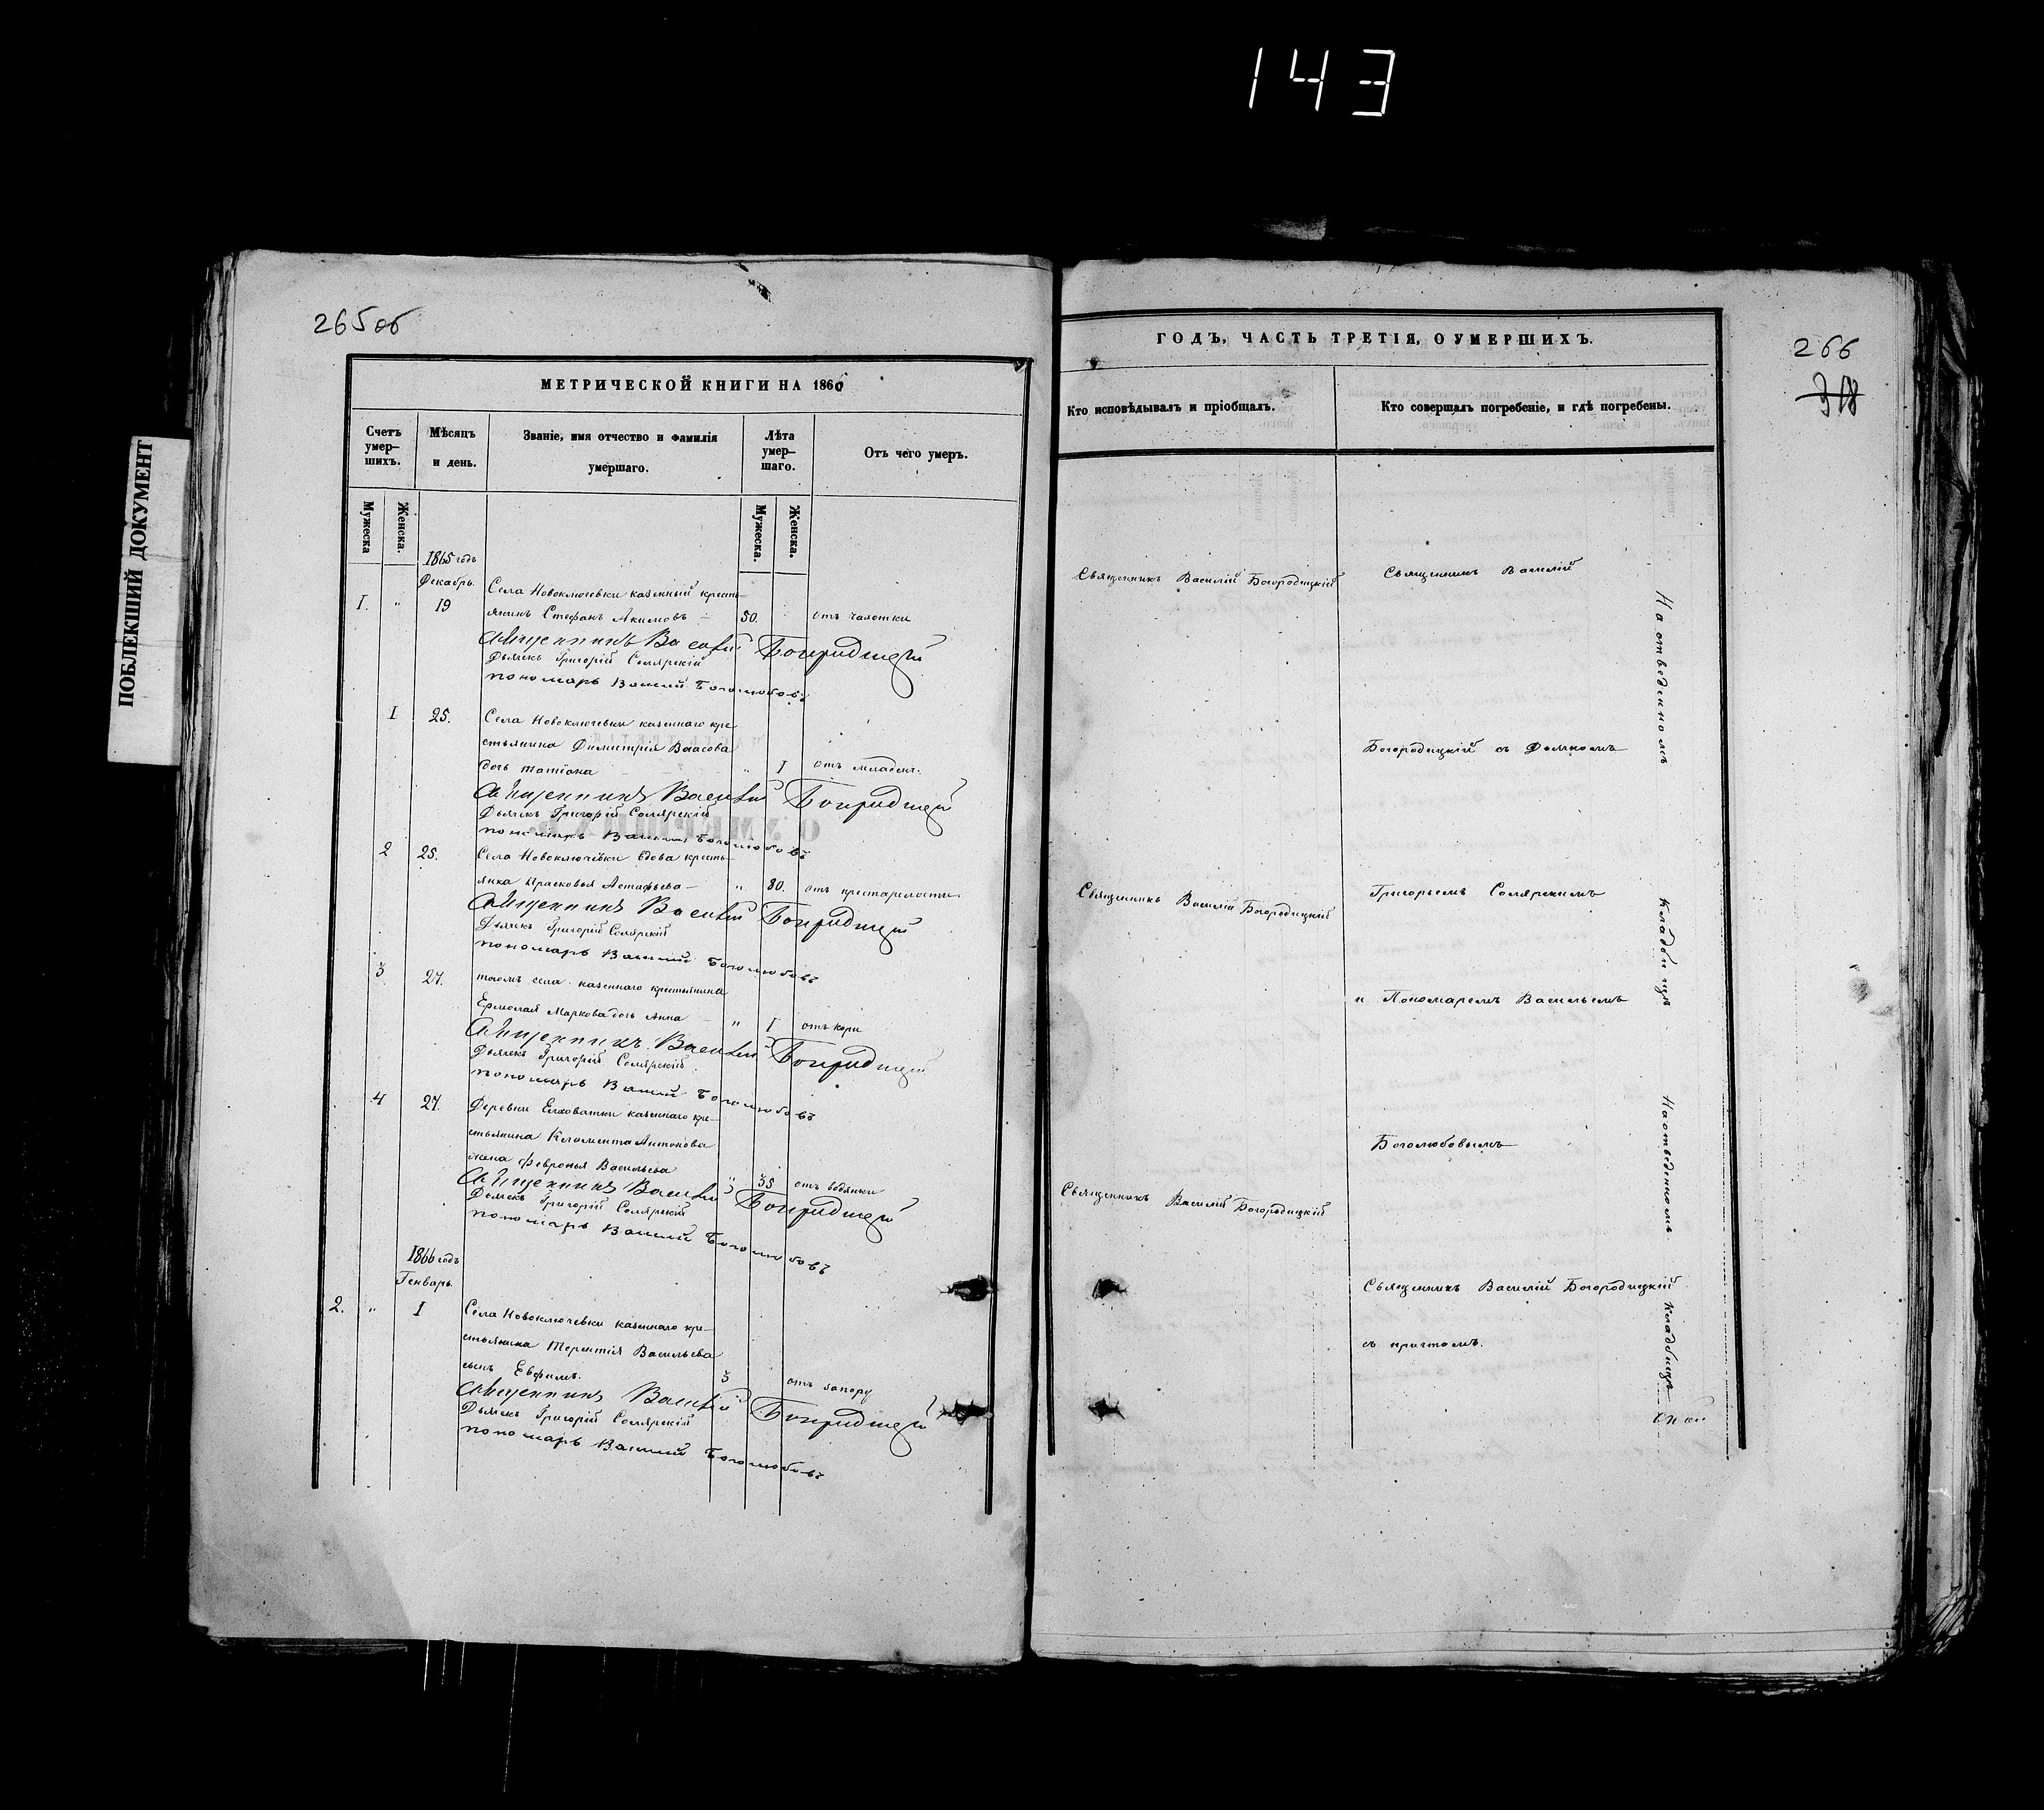 143
ПОБЛЕКШИЙ ДОКУМЕНТ
265об
МЕТРИЧЕСКОЙ КНИГИ НА 1866
Счетъ умер-шихъ.
Мѣсяцъ и день.
Званіе, имя отчество и фамилія умершаго.
Лѣта умер-шаго.
Отъ чего умеръ.
Мужеска
Женска.
Мужеска.
Женска.
1865 годъ
Декабрь.
Села Новоключевки казенный кресть-
I. " 19 янинъ Стефанъ Акимовъ 50. отъ чахотки
Священникъ Василій Богородицкій
Дьячекъ Григорій Солярскій
пономарь Василій Боголюбовъ
I 25. Села Новоключевки казеннаго кре-
стьянина Димитрія Власова
дочь Татіана " I отъ младен.
Священникъ Василій Богородицкій
Дьячекъ Григорій Солярскій
пономарь Василій Боголюбовъ
2 25. Села Новоключевки вдова кресть-
янка Прасковья Астафьева " 80. отъ престарелости
Священникъ Василій Богородицкій
Дьячекъ Григорій Солярскій
пономарь Василій Боголюбовъ
3 27. тогомъ села казеннаго крестьянина
Ермолая Маркова дочь Анна " I отъ кори
Священникъ Василій Богородицкій
Дьячекъ Григорій Солярскій
пономарь Василій Боголюбовъ
4 27. Деревни Елховатки казеннаго кре-
стьянина Климента Антонова
жена Февронья Васильева " 35 отъ водянки
Священникъ Василій Богородицкій
Дьячекъ Григорій Солярскій
пономарь Василій Боголюбовъ
1866 годъ
Генварь.
2. " I Села Новоключевки казеннаго кре-
стьянина Терентія Васильева
сынъ Евфимъ. 3 отъ запору
Священникъ Василій Богородицкій
Дьячекъ Григорій Солярскій
пономарь Василій Боголюбовъ
266
318
ГОДЪ, ЧАСТЬ ТРЕТІЯ, О УМЕРШИХЪ.
Кто исповѣдывалъ и пріобщалъ.
Кто совершалъ погребеніе, и гдѣ погребены.
Священникъ Василій Богородицкій
Священникъ Василій
Богородицкій съ Дьячкомъ
Священникъ Василій Богородицкій
Григорьемъ Солярскимъ
и Пономаремъ Васильемъ
Боголюбовымъ
Священникъ Василій Богородицкій
Священникъ Василій Богородицкій
съ причтомъ.
На отведенномъ
кладбищѣ
На отведенномъ
кладбищѣ